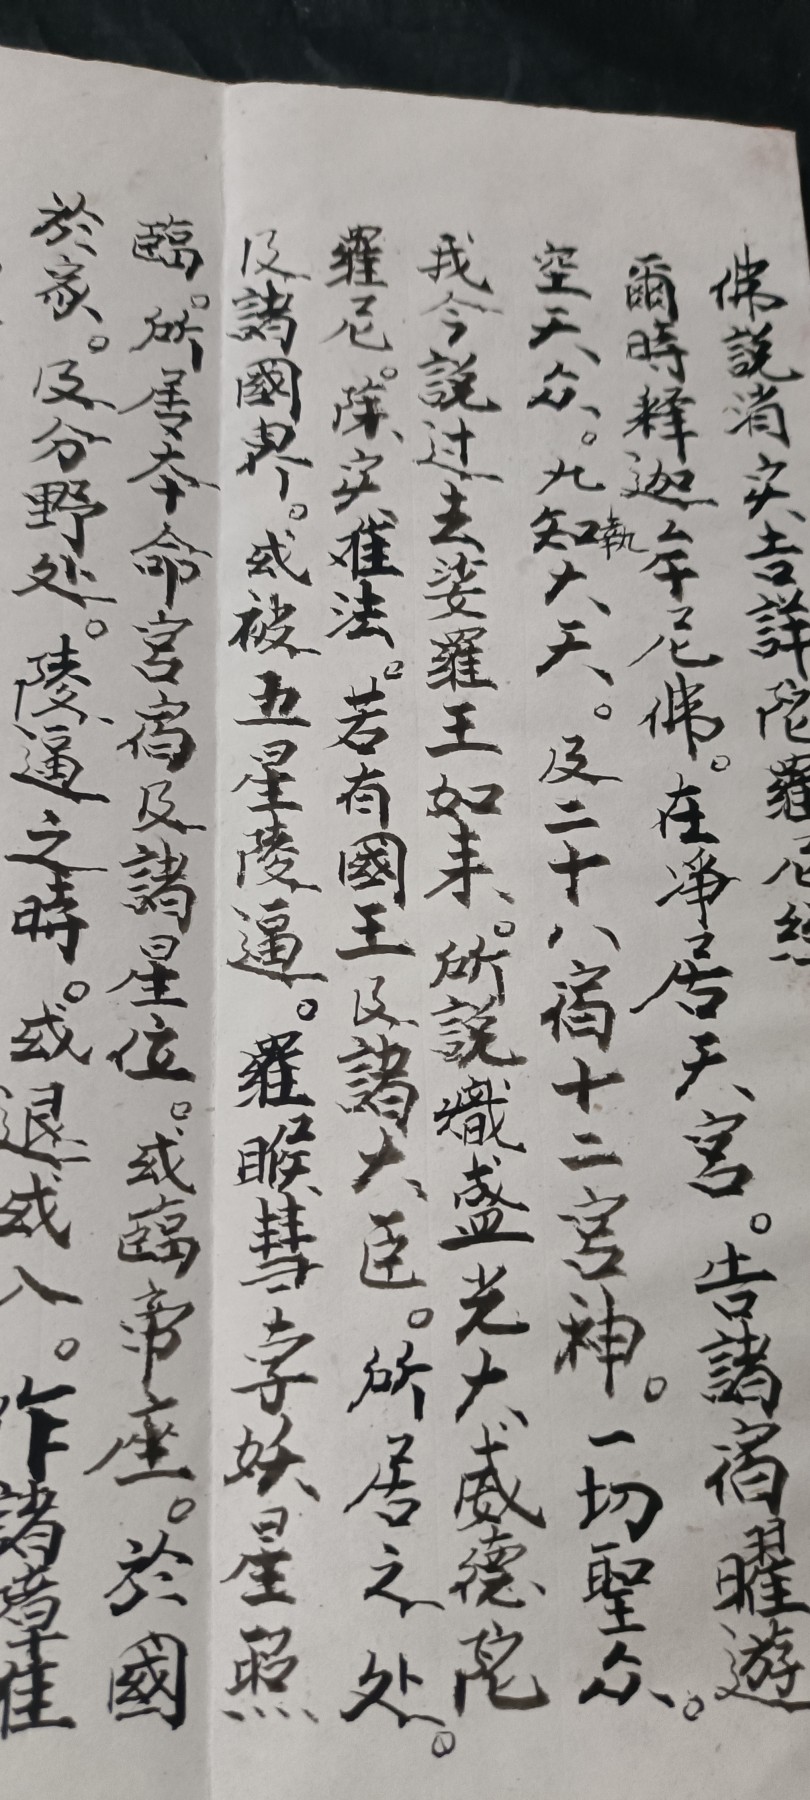 佛説消灾吉詳陀羅尼經
爾時释迦牟尼佛。在凈居天宫。告諸宿曜遊
空天众。九知執大天。及二十八宿十二宫神。一切聖众。
我今説过去娑羅王如来。所説熾盛光大威德陀
羅尼。除灾难法。若有國王及諸大臣。所居之处。
及諸國界。或被五星陵逼。羅睺彗孛妖星照
臨。所居本命宫宿及諸星位。或臨帝座。於國
於家。及分野处。陵逼之時。或退或入。作諸